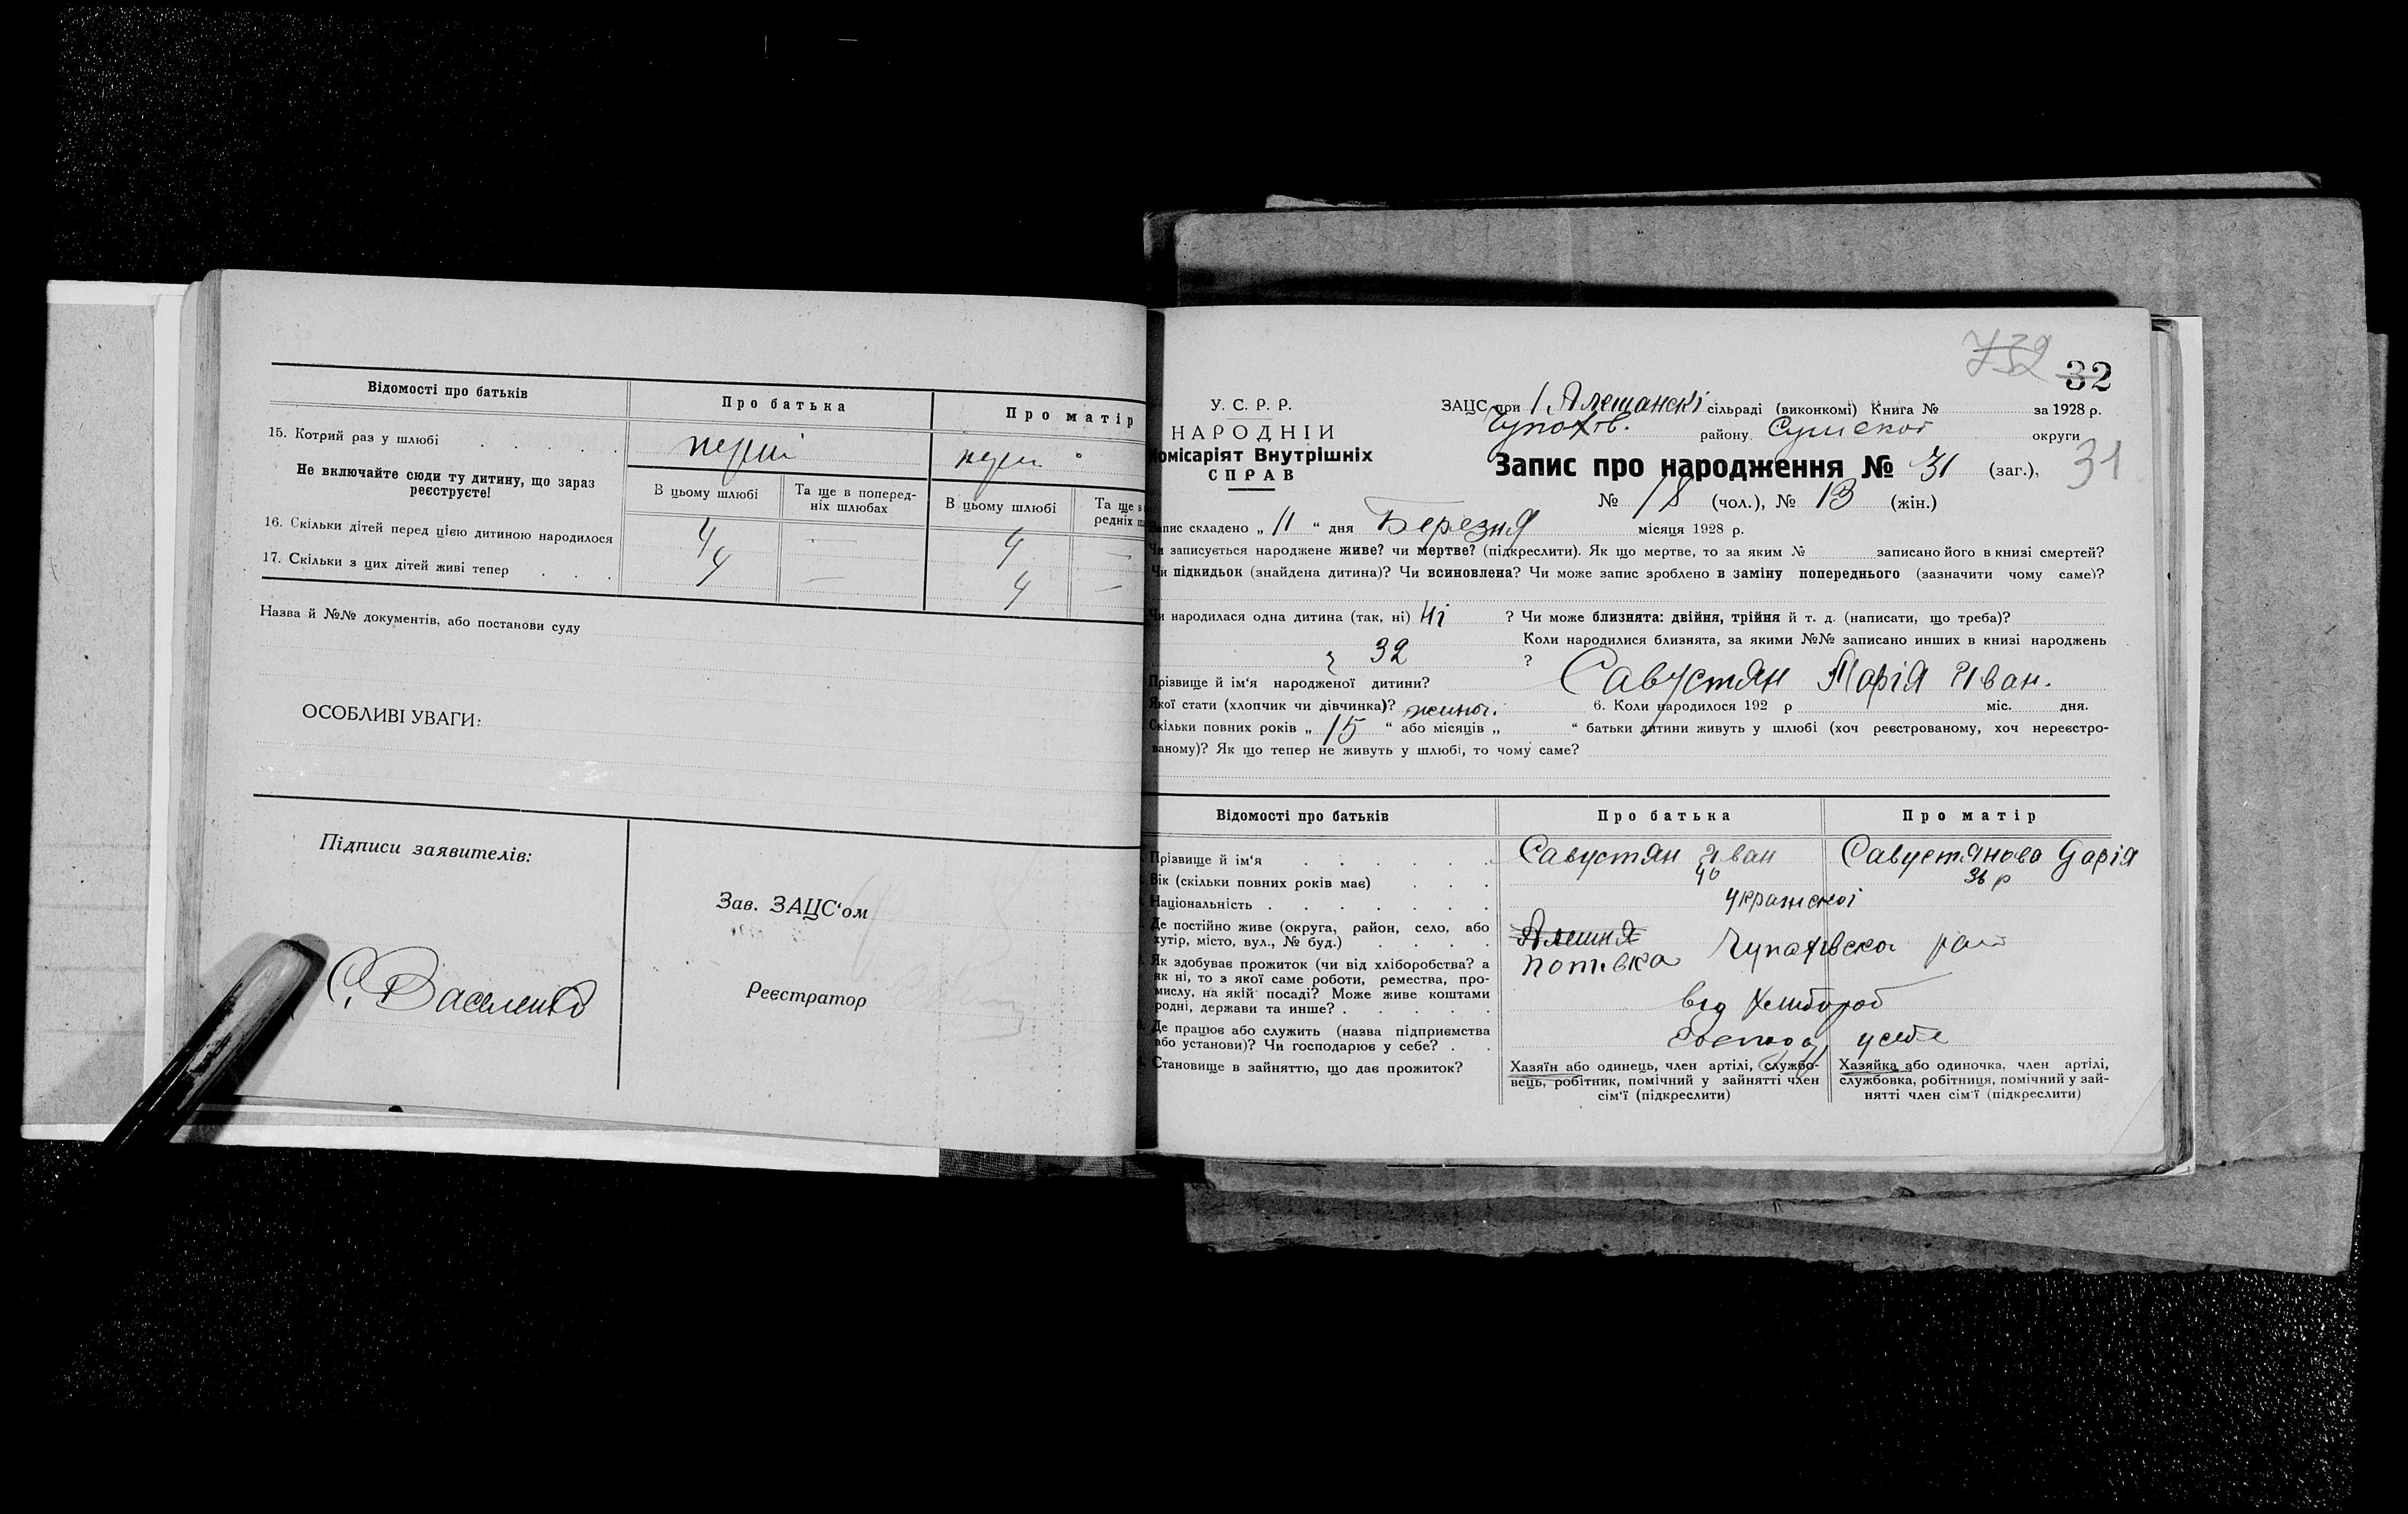 Відомості про батьків
Про батька
Про матір
15. Котрий раз у шлюбі
перший
перш.
Не включайте сюди ту дитину, що зараз
реєструєте!
В цьому шлюбі
Та ще в поперед-
ніх шлюбах
В цьому шлюбі
Та ще в
редніх
16. Скільки дітей перед цією дитиною народилося
4 — 4 —
17. Скільки з цих дітей живі тепер
4 — 4 —
Назва й №№ документів, або постанови суду
ОСОБЛИВІ УВАГИ:
Підписи заявителів:
Зав. ЗАЦС'ом
С. Василенко
Реєстратор
732
32
У. С. Р. Р.
НАРОДНІЙ
Комісаріят Внутрішніх
СПРАВ
ЗАЦС при 1 Алешанскі сільраді (виконкомі) Книга № за 1928 р.
Чупахів. району Сумскої округи
Запис про народження № 31 (заг.), 31
№ 18 (чол.), № 13 (жін.)
Запис складено „ 11 “ дня Березня місяця 1928 р.
Чи записується народжене живе? чи мертве? (підкреслити). Як що мертве, то за яким № записано його в книзі смертей?
Чи підкидьок (знайдена дитина)? Чи всиновлена? Чи може запис зроблено в заміну попереднього (зазначити чому саме)?
Чи народилася одна дитина (так, ні) Ні ? Чи може близнята: двійня, трійня й т. д. (написати, що треба)?
Коли народилися близнята, за якими №№ записано инших в книзі народжень
32 ?
Прізвище й ім'я народженої дитини? Савустян Марія Иван.
Якої стати (хлопчик чи дівчинка)? жіноч. 6. Коли народилося 192 р міс. дня.
Скільки повних років „ 15 “ або місяців „ “ батьки дитини живуть у шлюбі (хоч реєстрованому, хоч нереєстро-
ваному)? Як що тепер не живуть у шлюбі, то чому саме?
Відомості про батьків
Про батька
Про матір
Прізвище й ім'я
Савустян Иван
Савустянова Дарія
Вік (скільки повних років має)
40
36 р
Національність
Украінскоі
Де постійно живе (округа, район, село, або
хутір, місто, вул., № буд.)
Алешня
Чупахівска рай
Як здобуває прожиток (чи від хліборобства? а
як ні, то з якої саме роботи, ремества, про-
мислу, на якій посаді? Може живе коштами
родні, держави та инше?
від хлібороб
Де працює або служить (назва підприємства
або установи)? Чи господарює у себе?
господ у себе
Становище в зайняттю, що дає прожиток?
Хазяїн або одинець, член артілі, службо-
вець, робітник, помічний у зайнятті член
сім'ї (підкреслити)
Хазяйка або одиночка, член артілі,
службовка, робітниця, помічний у зай-
нятті член сім'ї (підкреслити)